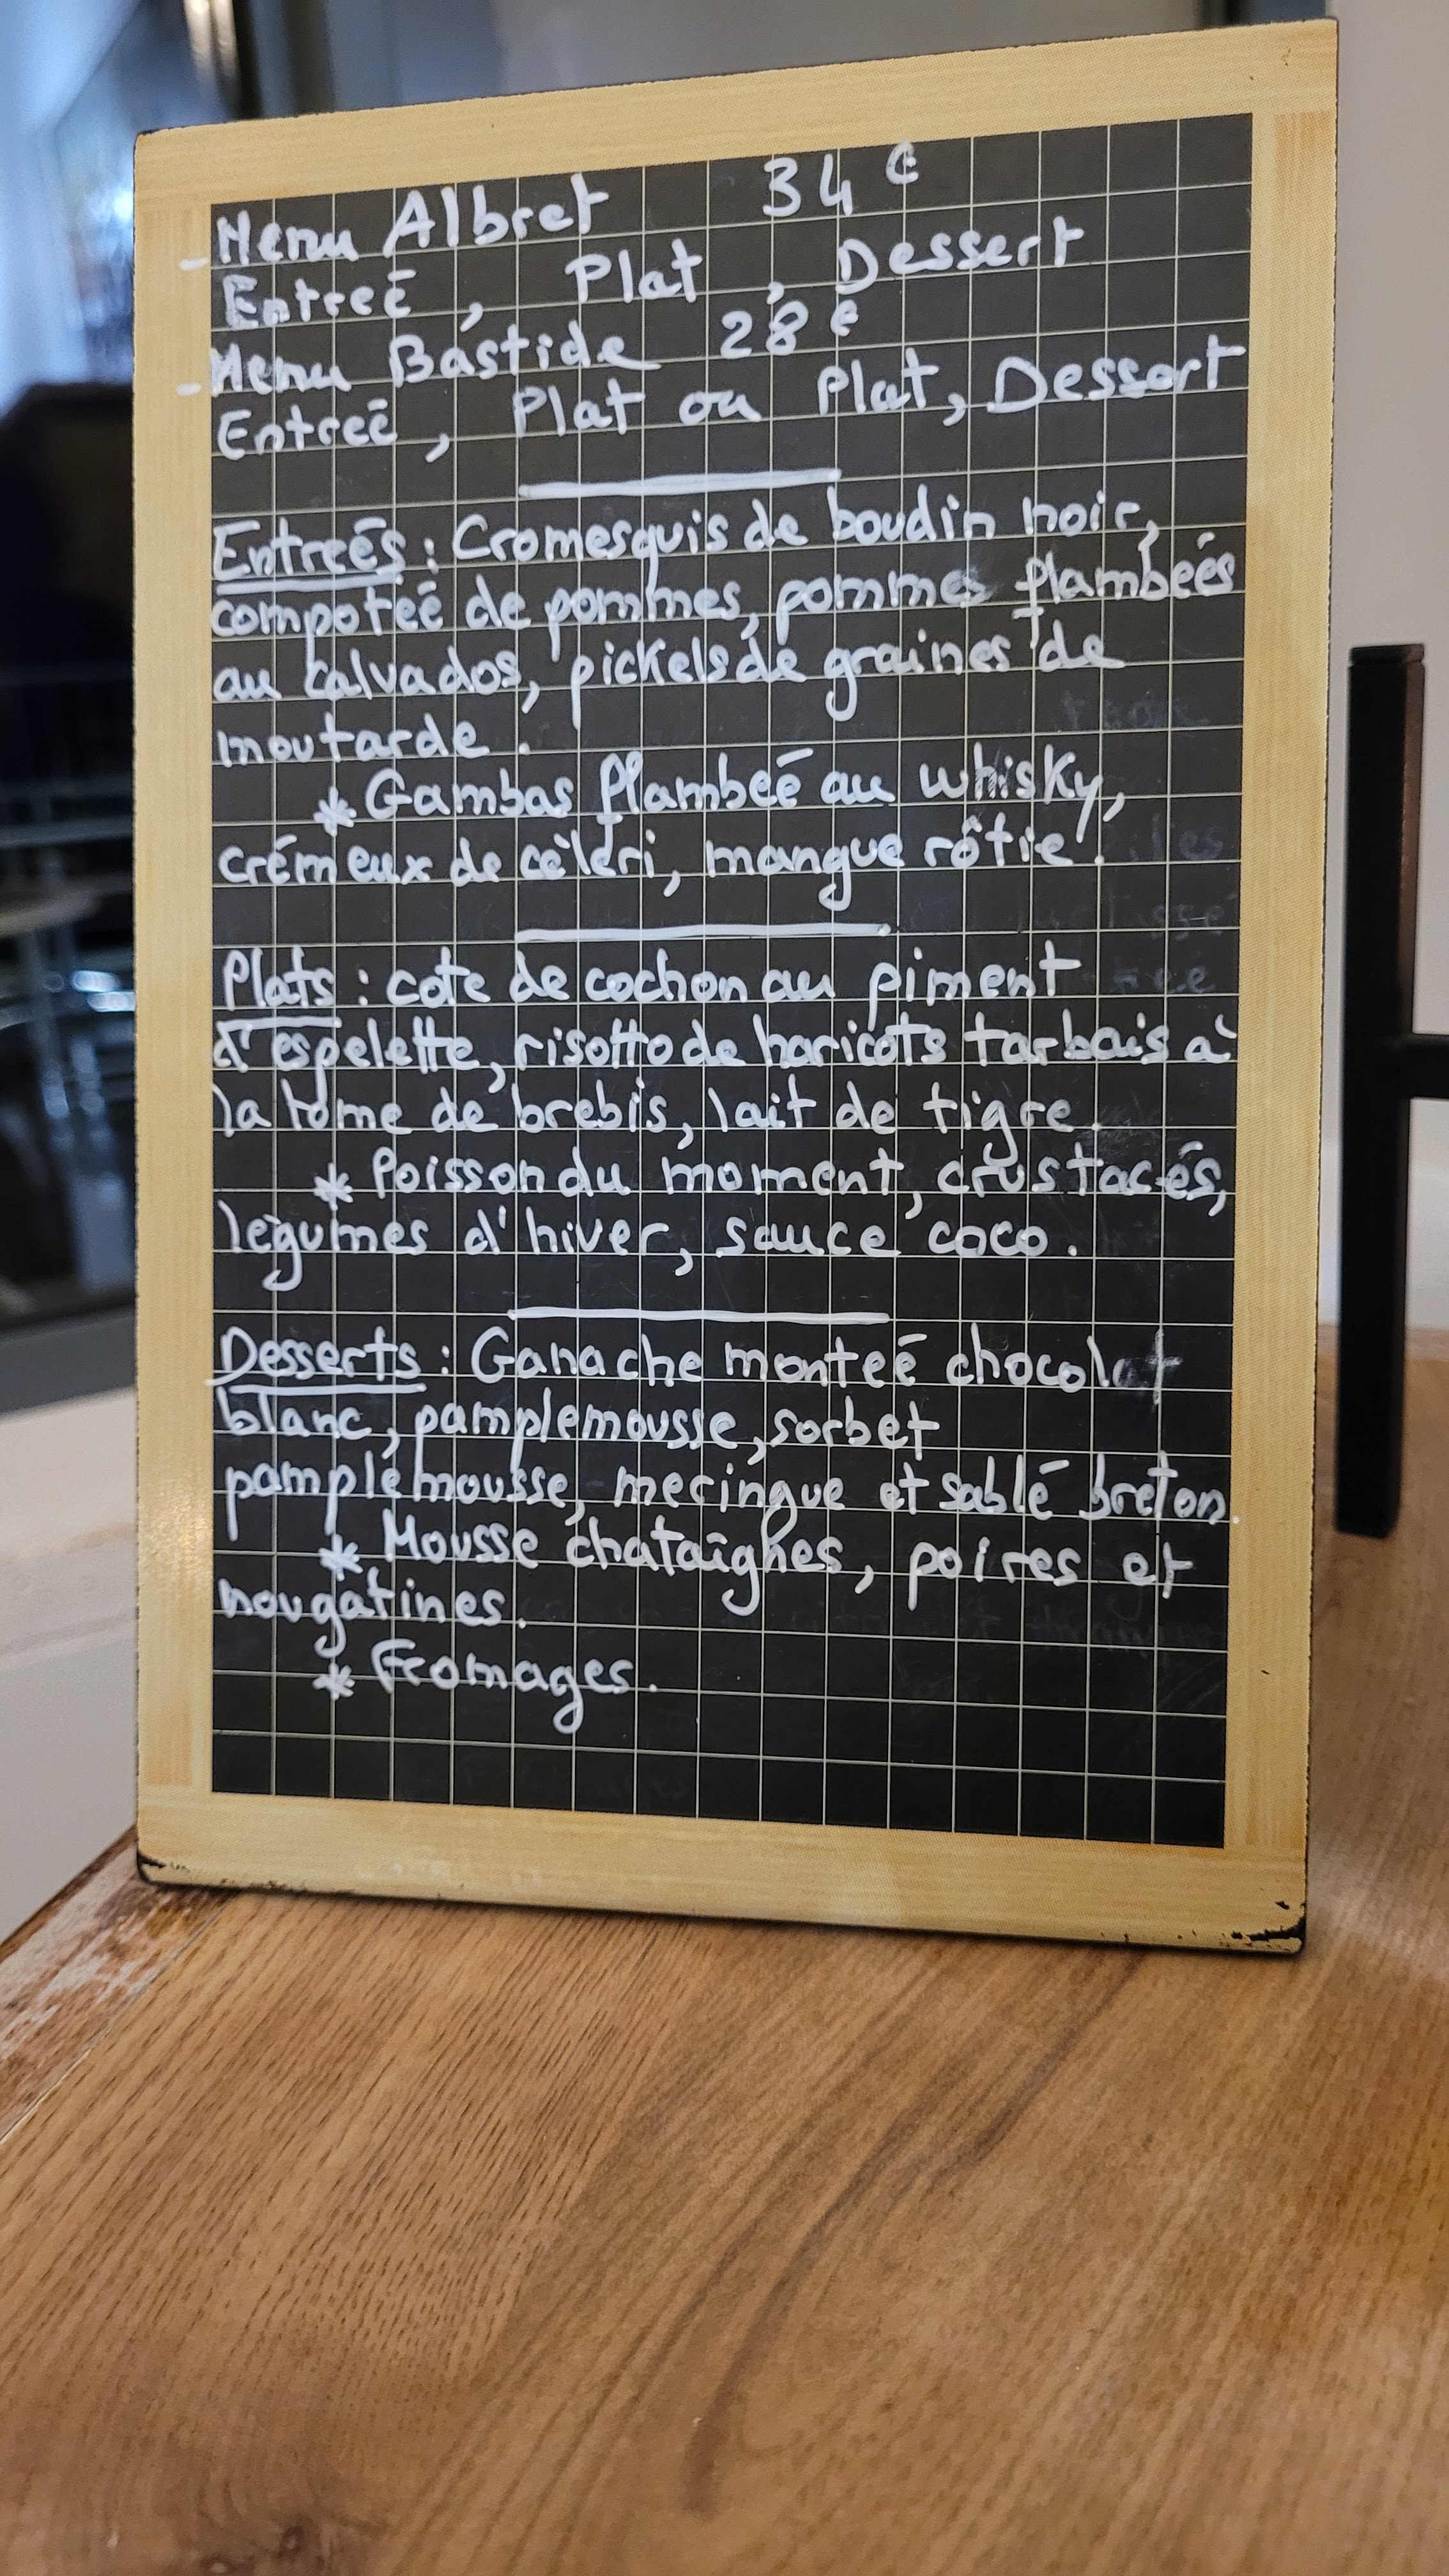 - Menu Albret 34 €
Entreé, Plat, Dessert
- Menu Bastide 28 €
Entreé, Plat ou Plat, Dessert
Entreés : Cromesquis de boudin noir,
compoteé de pommes, pommes flambeés
au calvados, pickels de graines de
moutarde.
* Gambas flambeé au whisky,
crémeux de céleri, mangue rôtie.
Plats : cote de cochon au piment
d'espelette, risotto de haricots tarbais à
la tome de brebis, lait de tigre.
* Poisson du moment, crustacés,
légumes d'hiver, sauce coco.
Desserts : Ganache monteé chocolat
blanc, pamplemousse, sorbet
pamplemousse, meringue et sablé breton.
* Mousse chataîgnes, poires et
nougatines.
* Fromages.